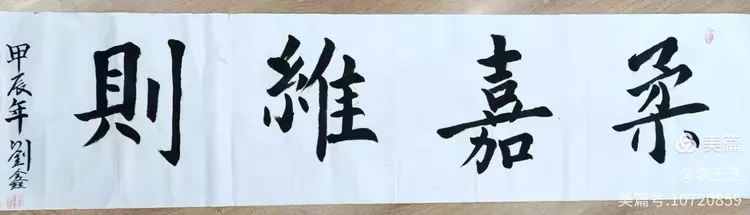 柔嘉維則
甲辰年 劉鑫
美篇
@李玉芝
美篇号:10720859